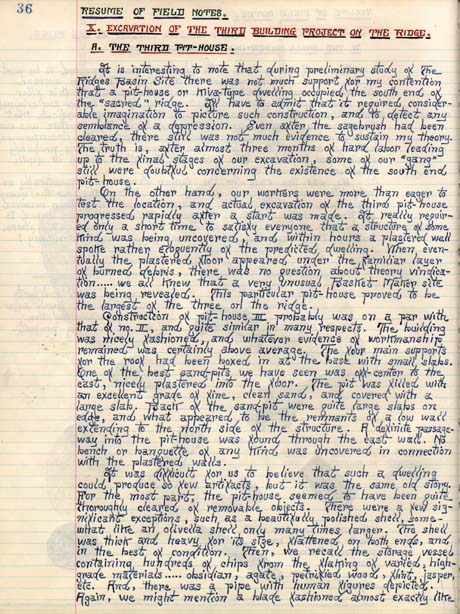 36
RESUME OF FIELD NOTES.
X. EXCAVATION OF THE THIRD BUILDING PROJECT ON THE RIDGE.
A. THE THIRD PIT-HOUSE.
It is interesting to note that during preliminary study of The
Ridges Basin Site there was not much support for my contention
that a pit-house or Kiva-type dwelling occupied the south end of
the "sacred" ridge. I'll have to admit that it required consider-
able imagination to picture such construction, and to detect any
semblance of a depression. Even after the sagebrush had been
cleared, there still was not much evidence to sustain my theory.
The truth is, after almost three months of hard labor leading
up to the final stages of our excavation, some of our "gang"
still were doubtful concerning the existence of the south end
pit-house.
On the other hand, our workers were more than eager to
test the location, and actual excavation of the third pit-house
progressed rapidly after a start was made. It really requir-
ed only a short time to satisfy everyone that a structure of some
kind was being uncovered, and within hours a plastered wall
spoke rather eloquently of the predicted dwelling. When even-
tually the plastered floor appeared under the familiar layer
of burned debris, there was no question about theory vindica-
tion..... we all knew that a very unusual Basket Maker site
was being revealed. This particular pit-house proved to be
the largest of the three on the ridge.
Construction of pit-house III probably was on a par with
that of no. II, and quite similar in many respects. The building
was nicely fashioned, and whatever evidence of workmanship
remained was certainly above average. The four main supports
for the roof had been boxed in at the base with small slabs.
One of the best sand-pits we have seen was off-center to the
east, nicely plastered into the floor. The pit was filled with
an excellent grade of fine, clean sand, and covered with a
large slab. Back of the sand-pit were quite large slabs on
edge, and what appeared to be the remnants of a low wall
extending to the north side of the structure. A definite passage-
way into the pit-house was found through the east wall. No
bench or banquette of any kind was uncovered in connection
with the plastered walls.
It was difficult for us to believe that such a dwelling
could produce so few artifacts, but it was the same old story.
For the most part, the pit-house seemed to have been quite
thoroughly cleared of removable objects. There were a few sig-
nificant exceptions, such as a beautifully polished shell, some-
what like an olivella shell only many times larger. The shell
was thick and heavy for its size, flattened on both ends, and
in the best of condition. Then, we recall the storage vessel
containing hundreds of chips from the flaking of varied, high-
grade materials..... obsidian, agate, petrified wood, flint, jasper,
etc. And, there was a pipe with human figures depicted.
Again, we might mention a blade fashioned almost exactly like